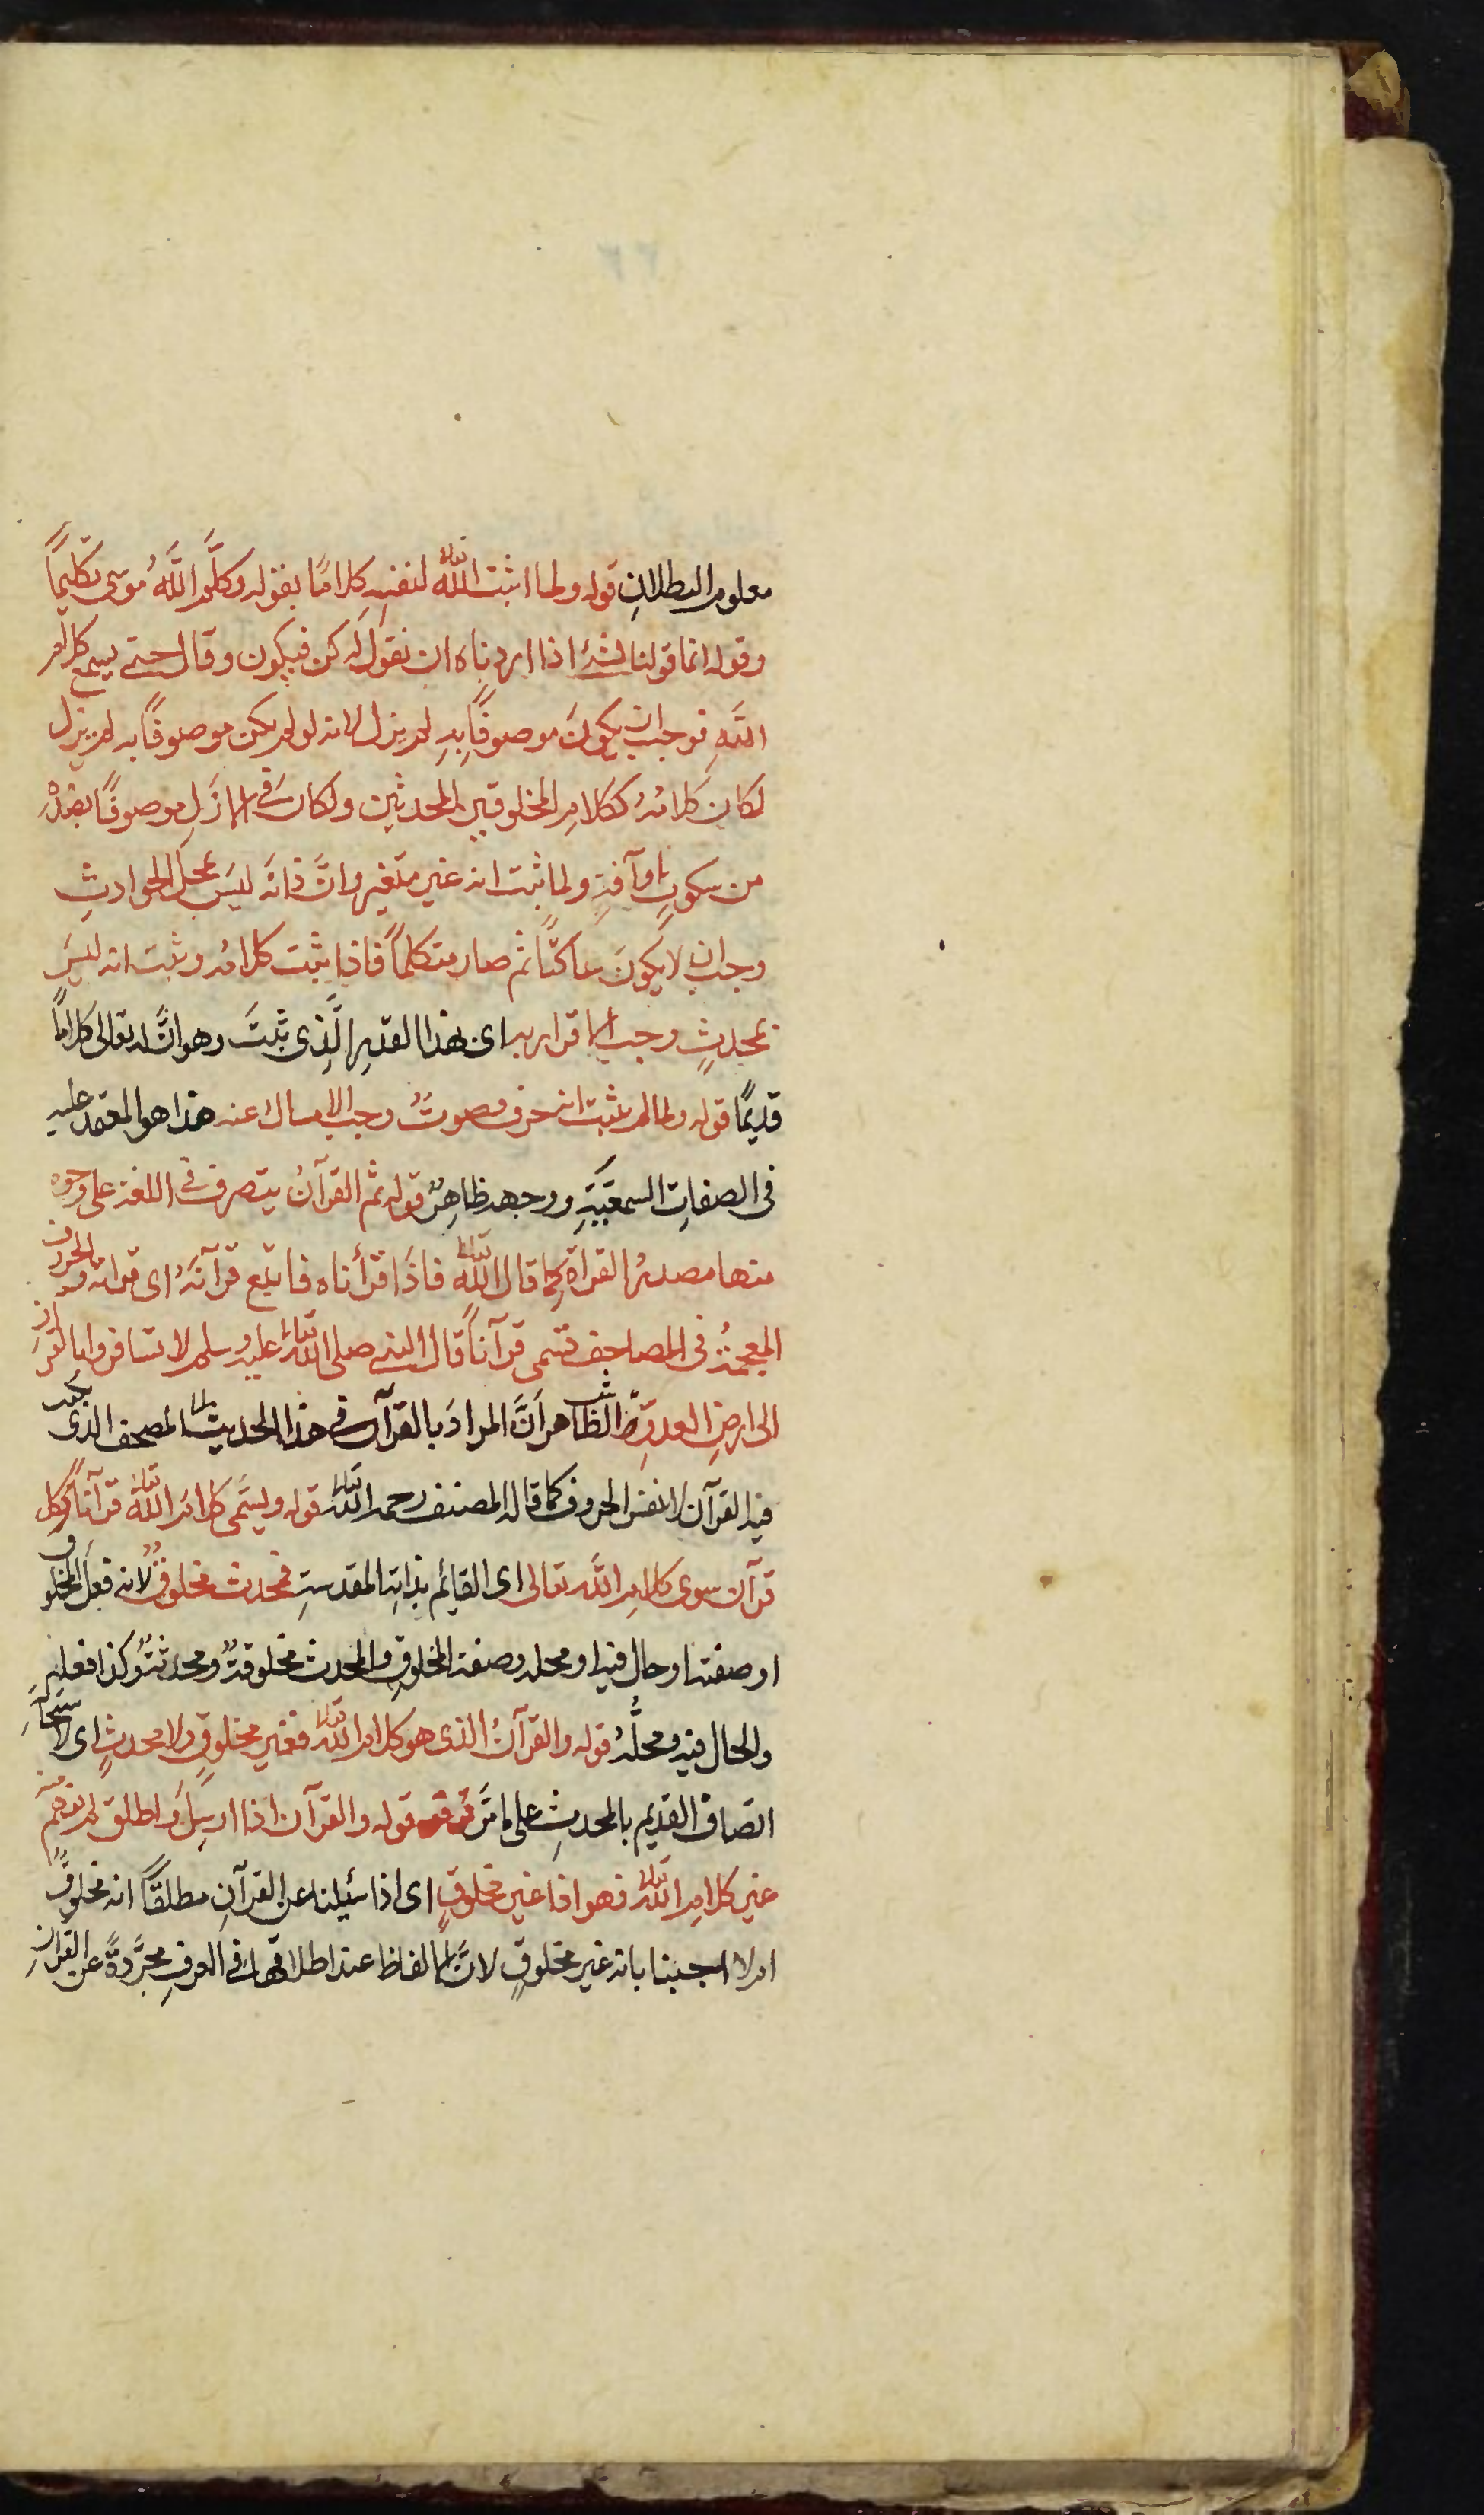 معلوم البطلانِ قوله ولما اثبت الله تعالى لنفسِهِ كلامًا بقوله وكلَّم اللَّهُ موسى تكليمًا
وقوله انما قولنا لشئ اذا اردناه ان نقول له كن فيكون وقال حتى يسمع كلام
اللَّهِ فوجب ان يكونَ موصوفًا بِهِ لم يزل لانه لو لم يكن موصوفًا به لم يزل
لكان كلامُهُ ككلامِ المخلوقين المحدثين ولكان في الازلِ موصوفًا بضدِّهِ
من سكوتٍ او آفةٍ ولما ثبت انه غير متغير وانَّ ذاتَه ليسَ بمحل الحوادثِ
وجب ان لا يكونَ ساكتًا ثم صار متكلمًا فاذا ثبت كلامُه وثبت انه ليسَ
بمحدثٍ وجب الاقرار به اى بهذا القدرِ الَّذِى ثبتَ وهو انَّ له تعالى كلامًا
قديمًا قوله ولما لم يثبت انه حرف وصوتٌ وجب الامساك عنه هذا هو المعتمد عليه
فى الصفاتِ السمعيَّةِ ووجهه ظاهِرٌ قوله ثم القرآنُ يتصرف فى اللغة على وجوه
منها مصدرُ القراة كما قال الله تعالى فاذَا قرأناه فاتبع قرآنَهُ اى قراته والحروف
المعجمةُ فى المصاحف تسمى قرآنًا قال النبى صلى الله تعالى عليه وسلم لا تسافروا بالقرآن
الى ارضِ العدوِّ الظاهر انَّ المرادَ بالقرآن فى هذا الحديث المصحف الذى كتب
فيه القرآن لا نفس الحروف كما قاله المصنف رحمه الله تعالى قوله ويسمَّى كلامُ الله تعالى قرآنًا وكل
قرآن سوى كلامِ اللَّه تعالى اى القائم بذاتِه المقدستِ فمحدث مخلوقٌ لانه فعل المخلوق
او صفته او حال فيه او محله وصفة المخلوقِ والمحدث مخلوقةٌ ومحدثةٌ وكذا فعله
والحال فيه ومحلُّهُ قوله والقرآنُ الذى هو كلام الله تعالى فغير مخلوقٍ ولا محدثٍ اى لاستحالةِ
اتصاف القديم بالمحدثِ على ما مرَّ قوله والقرآن اذا ارسِلَ واطلق لم يفهم منه
غير كلامِ الله تعالى فهو اذا غير مخلوقٍ اى اذا سُئلنا عن القرآنِ مطلقًا انه مخلوقٌ
ام لا اجبنا بانه غير مخلوقٍ لانَّ الالفاظ عند اطلاقها فى العرفِ مجرَّدةً عن القرآنِ